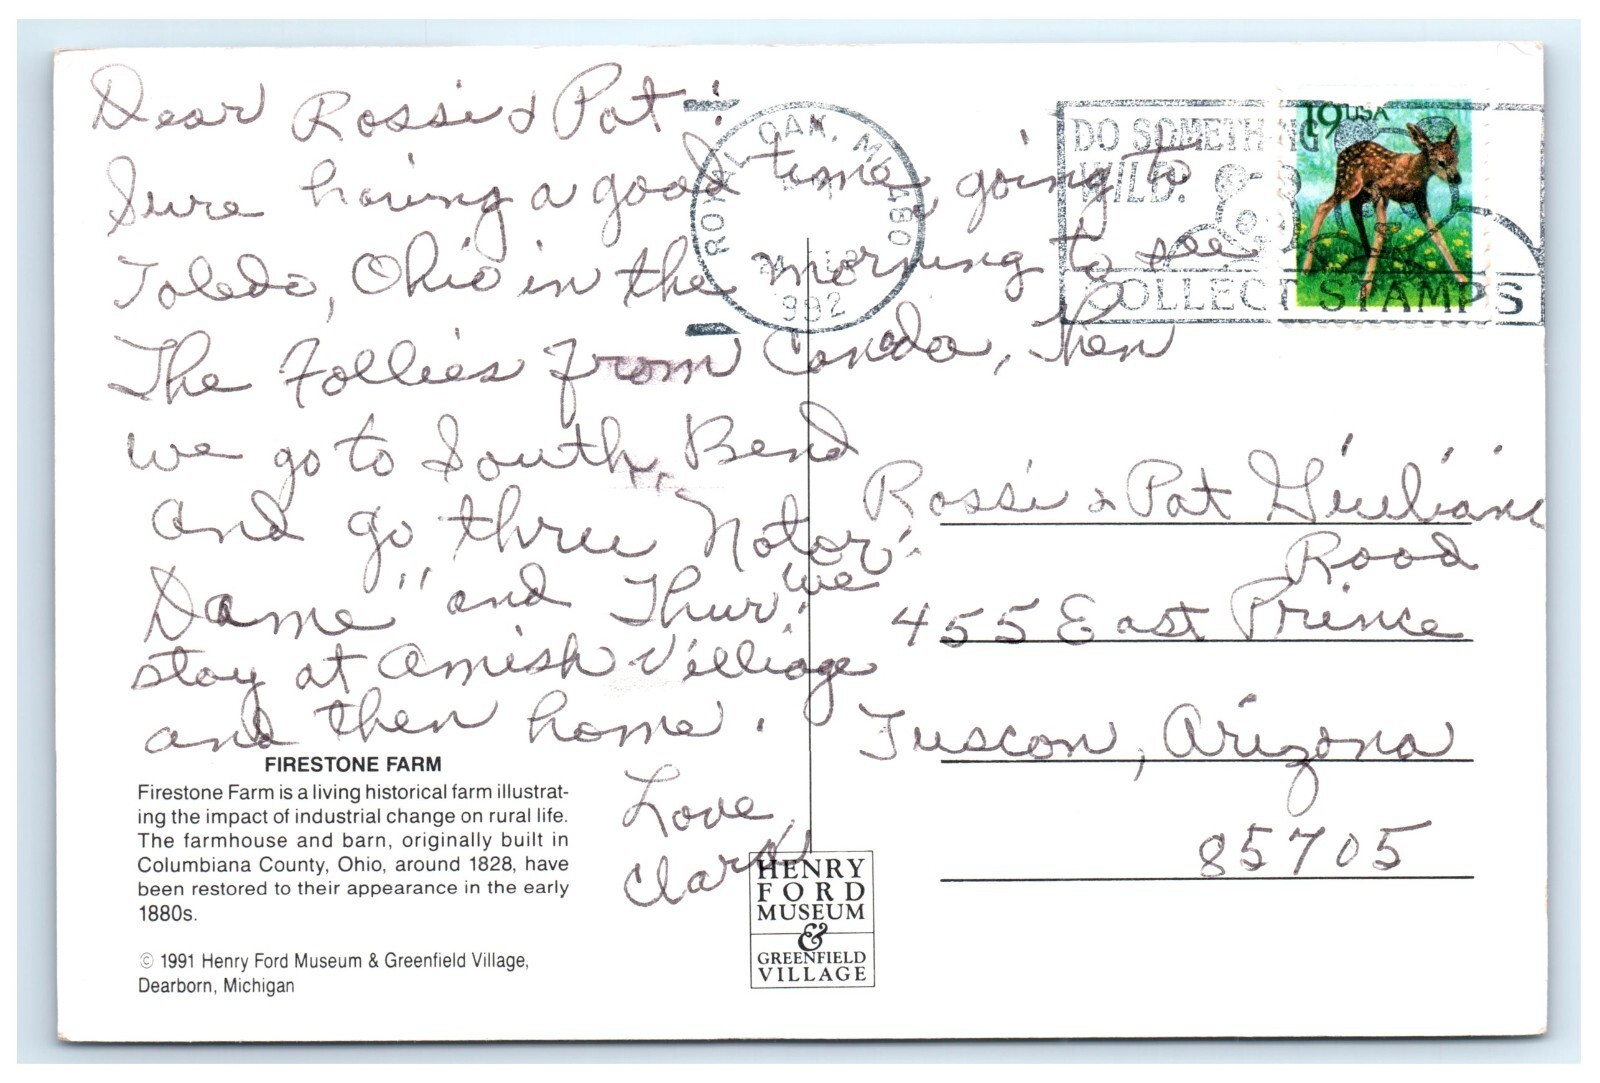 Dear Rossi & Pat:
Sure having a good time, going to
Toledo, Ohio in the morning to see
The Follies from Canada, then
we go to South, Bend
and go thru "Notor
Dame" and Thur. we
stay at Amish Village
and then home.
Love,
Clara
FIRESTONE FARM
Firestone Farm is a living historical farm illustrat-
ing the impact of industrial change on rural life.
The farmhouse and barn, originally built in
Columbiana County, Ohio, around 1828, have
been restored to their appearance in the early
1880s.
© 1991 Henry Ford Museum & Greenfield Village,
Dearborn, Michigan
HENRY
FORD
MUSEUM
&
GREENFIELD
VILLAGE
ROYAL OAK, MI 480
1992
DO SOMETHING
WILD:
COLLECT STAMPS
19 USA
Rossi & Pat Giuliani
Road
455 East Prince
Tuscon, Arizona
85705